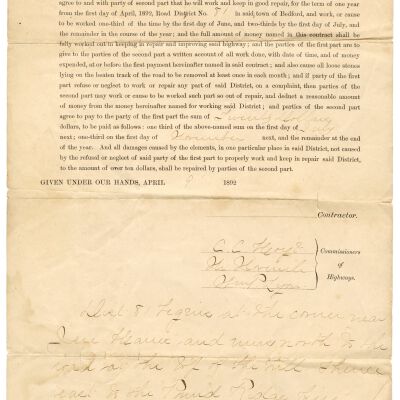 agree to and with party of second part that he will work and keep in good repair, for the term of one
year from the first day of April, 1892, Road District No. 81 in said town of Bedford, and work, or cause
to be worked one-third of the time by the first day of June, and two-thirds by the first day of July, and
the remainder in the course of the year; and the full amount of money named in this contract shall be
fully worked out in keeping in repair and improving said highway; and the parties of the first part are to
give to the parties of the second part a written account of all work done, with date of time, and of money
expended, at or before the first payment hereinafter named in said contract; and also cause all loose stones
lying on the beaten track of the road to be removed at least once in each month; and if party of the first
part refuse or neglect to work or repair any part of said District, on a complaint, then parties of the
second part may work or cause to be worked each part so out of repair, and deduct a reasonable amount
of money from the money hereinafter named for working said District; and parties of the second part
agree to pay to the party of the first part the sum of
dollars, to be paid as follows: one third of the above-named sum on the first day of July
next; one-third on the first day of November next, and the remainder at the end
of the year. And all damages caused by the elements, in one particular place in said District, not caused
by the refusal or neglect of said party of the first part to properly work and keep in repair said District,
to the amount of over ten dollars, shall be repaired by parties of the second part.
GIVEN UNDER OUR HANDS, APRIL 1892
Contractor.
C. C.
Commissioners
of
Highways.
Dist 81 begins at the corner near
and runs north to the
road at the of the Hill thence
east to the Pound Ridge line